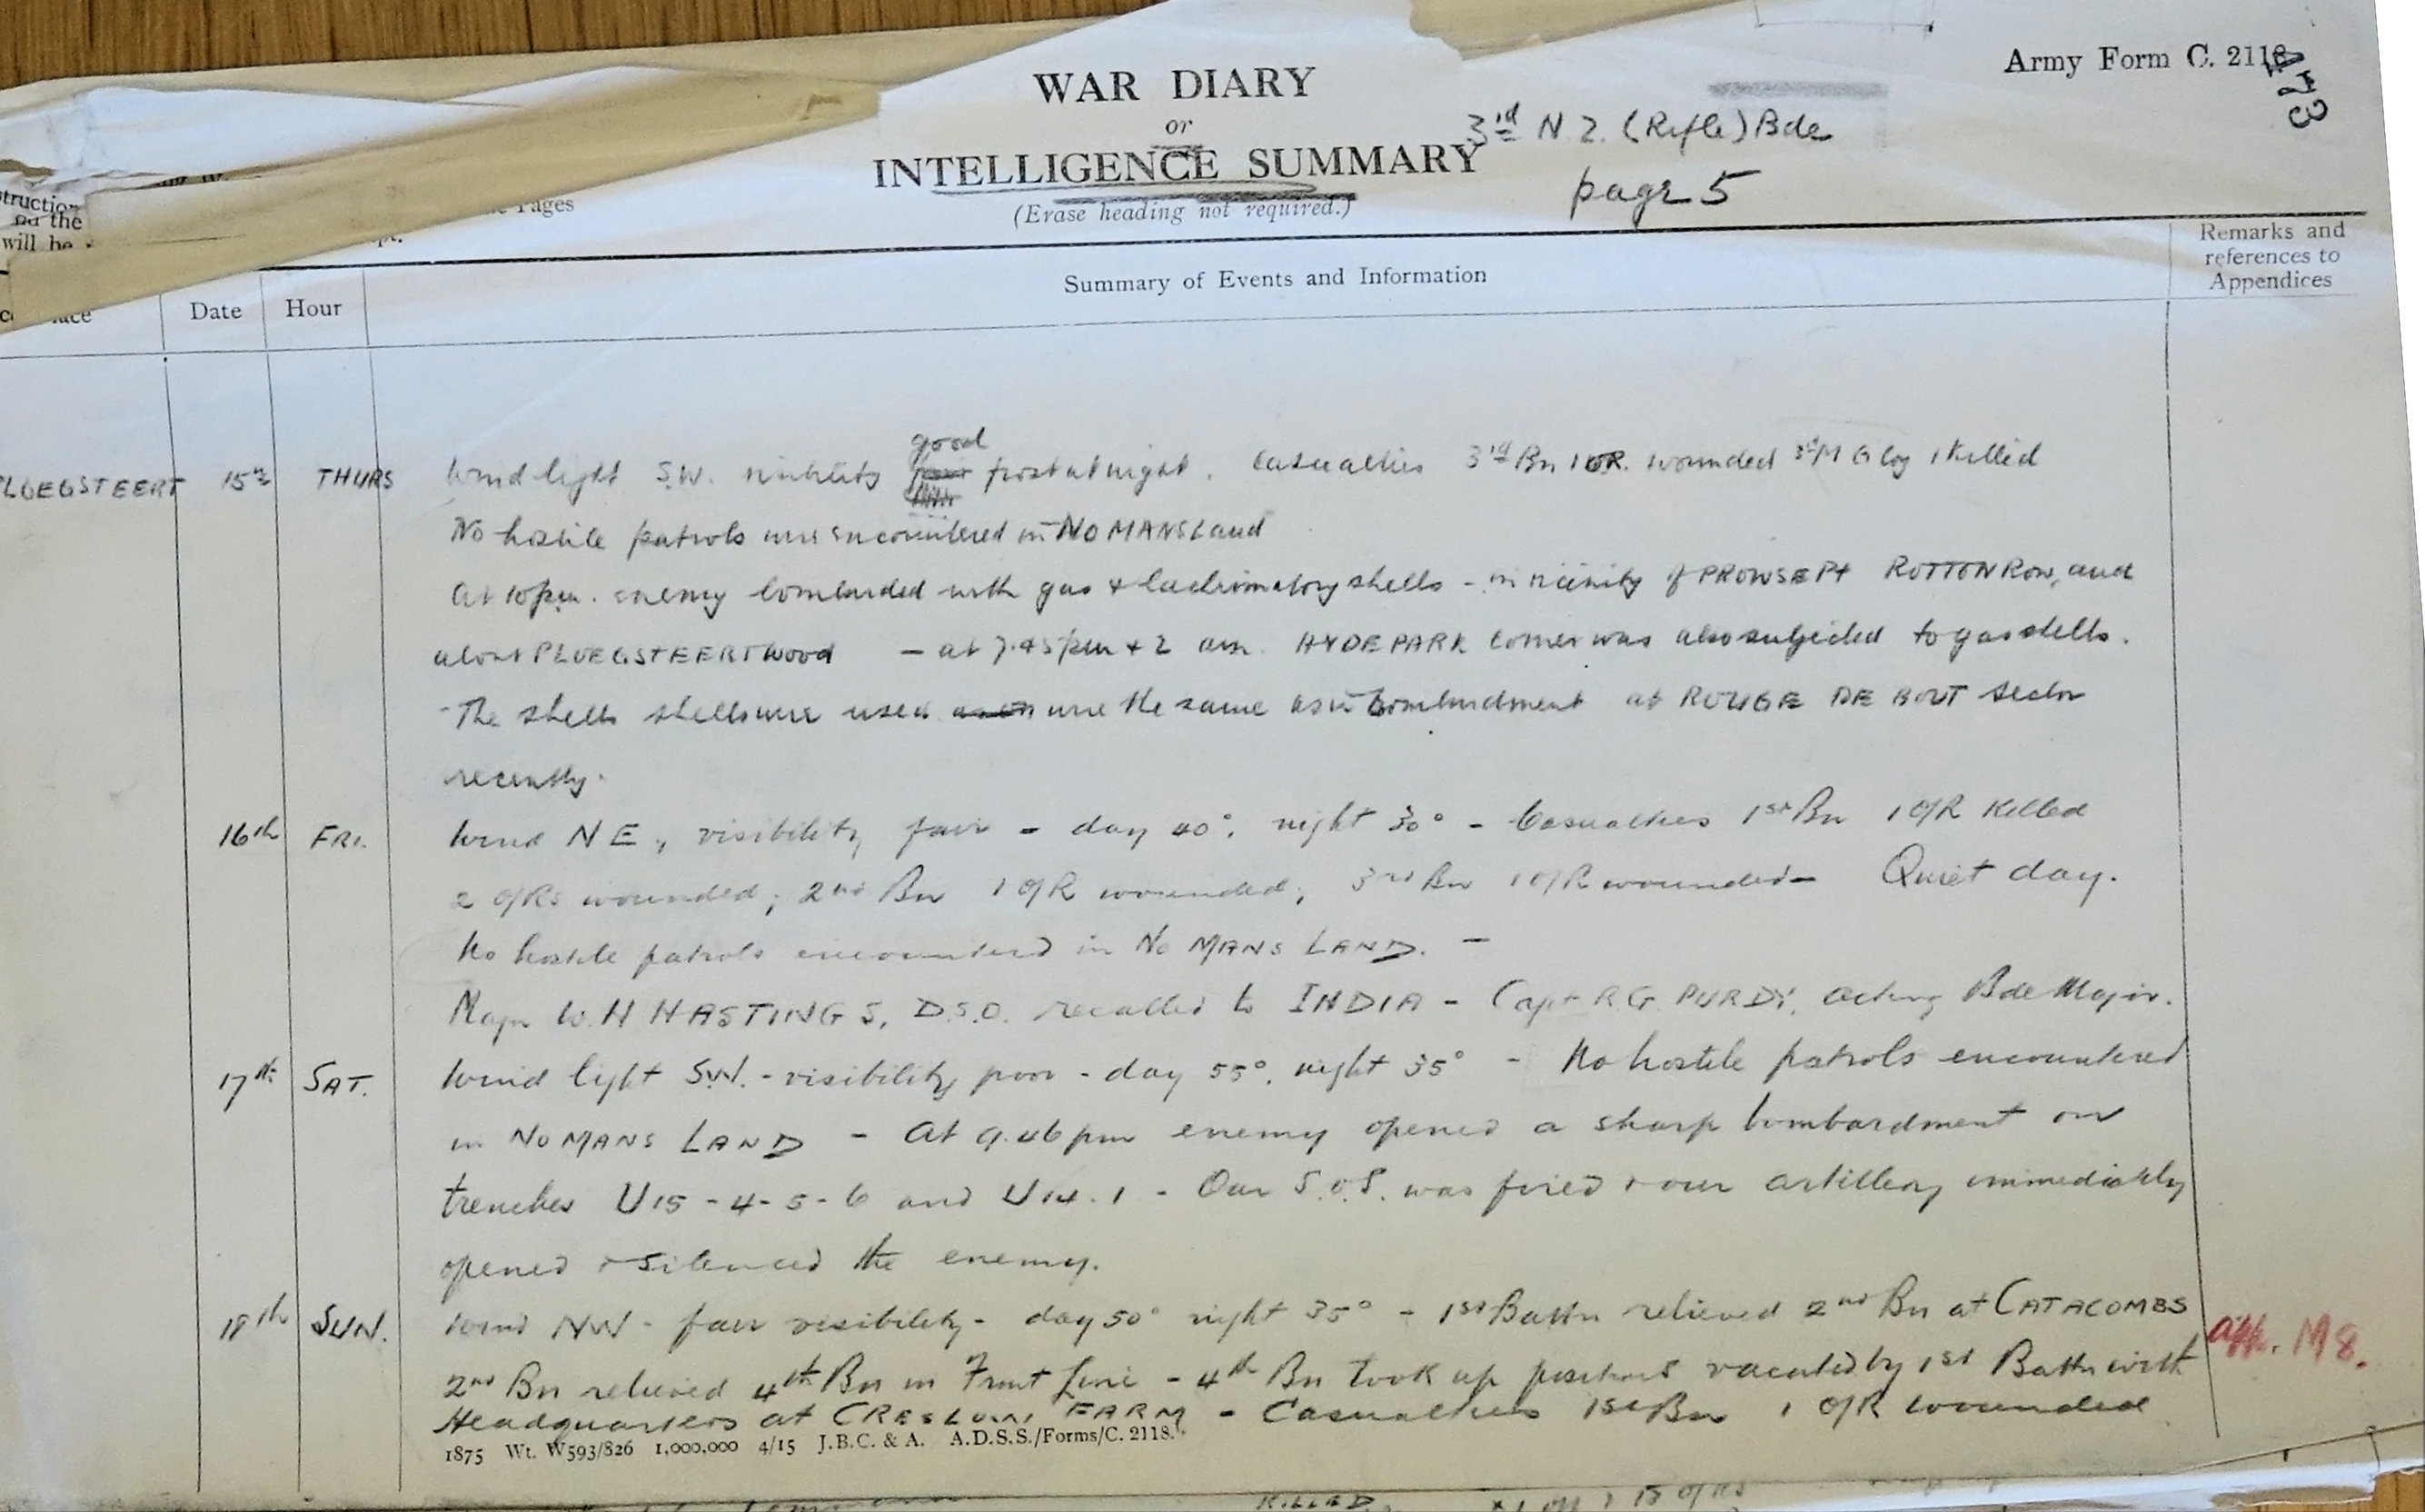 Army Form C. 2118
473
WAR DIARY
or
INTELLIGENCE SUMMARY
(Erase heading not required.)
3rd N.Z. (Rifle) Bde
page 5
truction
nd the
will be
Pages
Date
Hour
Summary of Events and Information
Remarks and
references to
Appendices
good
PLOEGSTEERT 15th THURS Wind light S.W. visibility frost at night. Casualties 3rd Bn 1 OR. wounded 3rd M G Coy 1 killed
No hostile patrols were encountered in NO MANS Land
At 10 pm. enemy bombarded with gas & lachrimatory shells - in vicinity of PROWSE Pt ROTTON ROW, and
about PLOEGSTEERT Wood - at 7.45 pm & 2 am. HYDE PARK Corner was also subjected to gas shells.
- The shells shells were used were the same as in bombardment at ROUGE DE BOUT Sector
recently.
16th FRI. Wind NE, visibility fair - day 40°, night 30° - Casualties 1st Bn 1 O/R Killed
2 O/Rs wounded; 2nd Bn 1 O/R wounded; 3rd Bn 1 O/R wounded - Quiet day.
No hostile patrols encountered in No MANS LAND. -
Major W. H HASTINGS, D.S.O. recalled to INDIA - Capt R G. PURDY, Acting Bde Major.
17th SAT. Wind light S.W. - visibility poor - day 55°, night 35° - No hostile patrols encountered
in NO MANS LAND - At 9.46 pm enemy opened a sharp bombardment on
trenches U15 - 4 - 5 - 6 and U14.1 - Our S.O.S. was fired & our artillery immediately
opened & silenced the enemy.
18th SUN. Wind NW - fair visibility - day 50° night 35° - 1st Battn relieved 2nd Bn at CATACOMBS
app. M8.
2nd Bn relieved 4th Bn in Front Line - 4th Bn took up positions vacated by 1st Battn with
Headquarters at CRESLOW FARM - Casualties 1st Bn 1 O/R wounded
1875 Wt. W593/826 1,000,000 4/15 J.B.C. & A. A.D.S.S./Forms/C. 2118.
KILLED